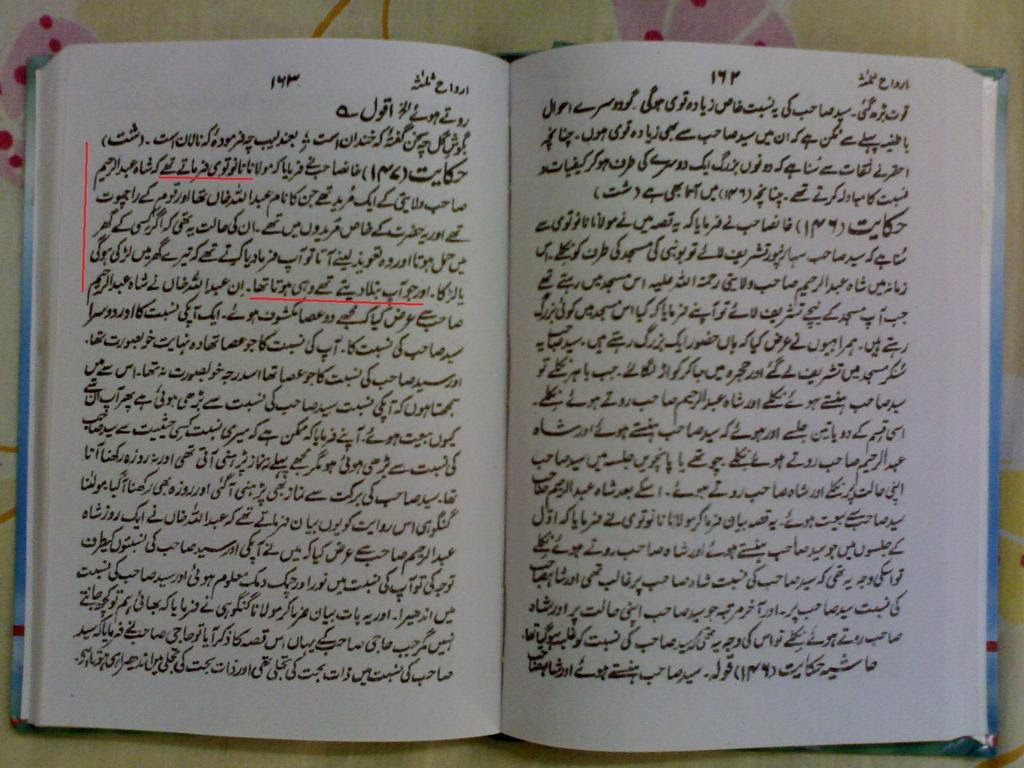 ارواح ثلٰثہ
۱۶۲
قوت بڑھ گئی۔ سید صاحب کی یہ نسبت خاص زیادہ قوی ہوگی۔ گو دوسرے احوال
باطنیہ پہلے سے ممکن ہے کہ ان میں سید صاحب سے بھی زیادہ قوی ہوں۔ چنانچہ
احقر نے ثقات سے سُنا ہے کہ دونوں بزرگ ایک دوسرے کی طرف ہو کر کیفیات و
نسبت کا مبادلہ کرتے تھے۔ چنانچہ (۱۳۶) میں آتا بھی ہے (شت)
حکایت (۱۴۶) خانصاحب نے فرمایا کہ یہ قصہ میں نے مولانا نانوتوی سے
سُنا ہے کہ سید صاحب سہارنپور تشریف لائے تو بونی کی مسجد کی طرف کو نکلے۔ اس
زمانہ میں شاہ عبدالرحیم صاحب ولایتی رحمۃ اللہ علیہ اس مسجد میں رہتے تھے
جب آپ مسجد کے نیچے تشریف لائے تو آپنے فرمایا کہ کیا اس مسجد میں کوئی بزرگ
رہتے ہیں۔ ہمراہیوں نے عرض کیا کہ ہاں حضور ایک بزرگ رہتے ہیں۔ سید صاحب یہ
سُنکر مسجد میں تشریف لے گئے اور حجرہ میں جا کر کواڑ لگالئے۔ جب باہر نکلے تو
سید صاحب ہنستے ہوئے نکلے اور شاہ عبدالرحیم صاحب روتے ہوئے نکلے۔
اسی قسم کے دو یا تین جلسے اور ہوئے کہ سید صاحب ہنستے ہوئے اور شاہ
عبدالرحیم صاحب روتے ہوئے نکلے۔ چوتھے یا پانچویں جلسہ میں سید صاحب
اپنی حالت پر نکلے اور شاہ صاحب روتے ہوئے۔ اسکے بعد شاہ عبدالرحیم صاحب
سید صاحب سے بیعت ہوئے۔ یہ قصہ بیان فرما کر مولانا نانوتوی نے فرمایا کہ اوّل
کے جلسوں میں جو سید صاحب ہنستے ہوئے اور شاہ صاحب روتے ہوئے نکلے
تو اسکی وجہ یہ تھی کہ سید صاحب کی نسبت شاہ صاحب پر غالب تھی اور شاہ صاحب
کی نسبت سید صاحب پر۔ اور آخر مرتبہ جو سید صاحب اپنی حالت پر اور شاہ
صاحب روتے ہوئے نکلے تو اس کی وجہ یہ تھی کہ سید صاحب کی نسبت کو غلبہ ہو گیا تھا۔
حاشیہ حکایت (۱۴۶) قولہ۔ سید صاحب ہنستے ہوئے اور شاہ صاحب
ارواح ثلٰثہ
۱۶۳
روتے ہوئے الخ اقول ؎
بگوش گل چہ سخن گفتۂ کہ خندان است ؞ بعندلیب چہ فرمودۂ کہ نالان ست۔ (شت)
حکایت (۱۴۷) خانصاحب نے فرمایا کہ مولانا نانوتوی فرماتے تھے کہ شاہ عبدالرحیم
صاحب ولایتی کے ایک مُرید تھے جن کا نام عبداللہ خاں تھا اور قوم کے راجپوت
تھے اور یہ حضرت کے خاص مُریدوں میں تھے۔ ان کی حالت یہ تھی کہ اگر کسی کے گھر
میں حمل ہوتا اور وہ تعویذ لینے آتا تو آپ فرما دیا کرتے تھے کہ تیرے گھر میں لڑکی ہوگی
یا لڑکا۔ اور جو آپ بتلا دیتے تھے وہی ہوتا تھا۔ ان عبداللہ خاں نے شاہ عبدالرحیم
صاحب سے عرض کیا کہ مجھے دو عصا مکشوف ہوئے۔ ایک آپکی نسبت کا اور دوسرا
سید صاحب کی نسبت کا۔ آپ کی نسبت کا جو عصا تھا وہ نہایت خوبصورت تھا۔
اور سید صاحب کی نسبت کا جو عصا تھا اسدرجہ خوبصورت نہ تھا۔ اس سے میں
سمجھتا ہوں کہ آپکی نسبت سید صاحب کی نسبت سے بڑھی ہوئی ہے پھر آپ ان سے
کیوں بیعت ہوئے۔ آپنے فرمایا کہ ممکن ہے کہ میری نسبت کسی حیثیت سے سید صاحب
کی نسبت سے بڑھی ہوئی ہو مگر مجھے پہلے نہ نماز پڑھنی آتی تھی اور نہ روزہ رکھنا آتا
تھا۔ سید صاحب کی برکت سے نماز بھی پڑھنی آگئی اور روزہ بھی رکھنا آگیا۔ مولٰنا
گنگوہی اس روایت کو یوں بیان فرماتے تھے کہ عبداللہ خاں نے ایک روز شاہ
عبدالرحیم صاحب سے عرض کیا کہ میں نے آپکی اور سید صاحب کی نسبتوں کیطرف
توجہ کی تو آپ کی نسبت میں نور اور چمک دمک معلوم ہوئی اور سید صاحب کی نسبت
میں اندھیرا۔ اور یہ بات بیان فرما کر مولانا گنگوہی نے فرمایا کہ بھائی ہم تو کچھ جانتے
نہیں مگر جب حاجی صاحب کے یہاں اس قصہ کا ذکر آیا تو حاجی صاحب نے فرمایا کہ سید
صاحب کی نسبت میں ذات بحت کی تجلی تھی اور ذات بحت کی تجلی